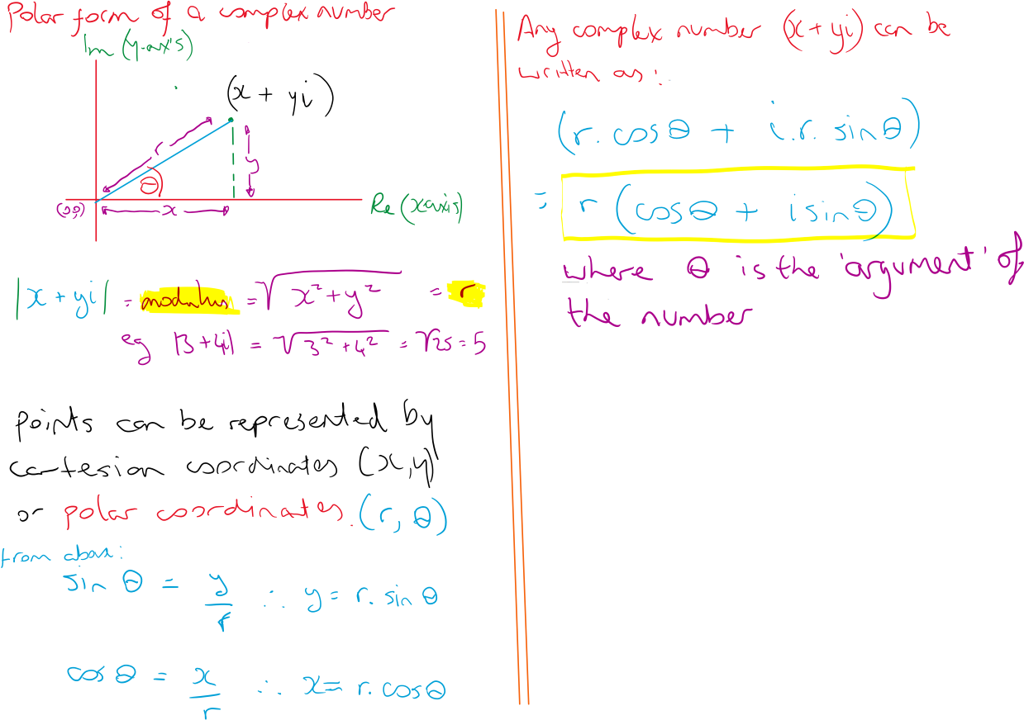 Polar form of a complex number
Im (y-axis)
(x + yi)
r
y
θ
(0,0)
x
Re (x axis)
|x + yi| = modulus = √x² + y² = r
eg |3 + 4i| = √3² + 4² = √25 = 5
points can be represented by
cartesian coordinates (x,y)
or polar coordinates. (r, θ)
from above:
sin θ = y/r ∴ y = r. sin θ
cos θ = x/r ∴ x = r. cos θ
Any complex number (x + yi) can be
written as:
(r. cos θ + i.r. sin θ)
= r (cos θ + i sin θ)
where θ is the 'argument' of
the number